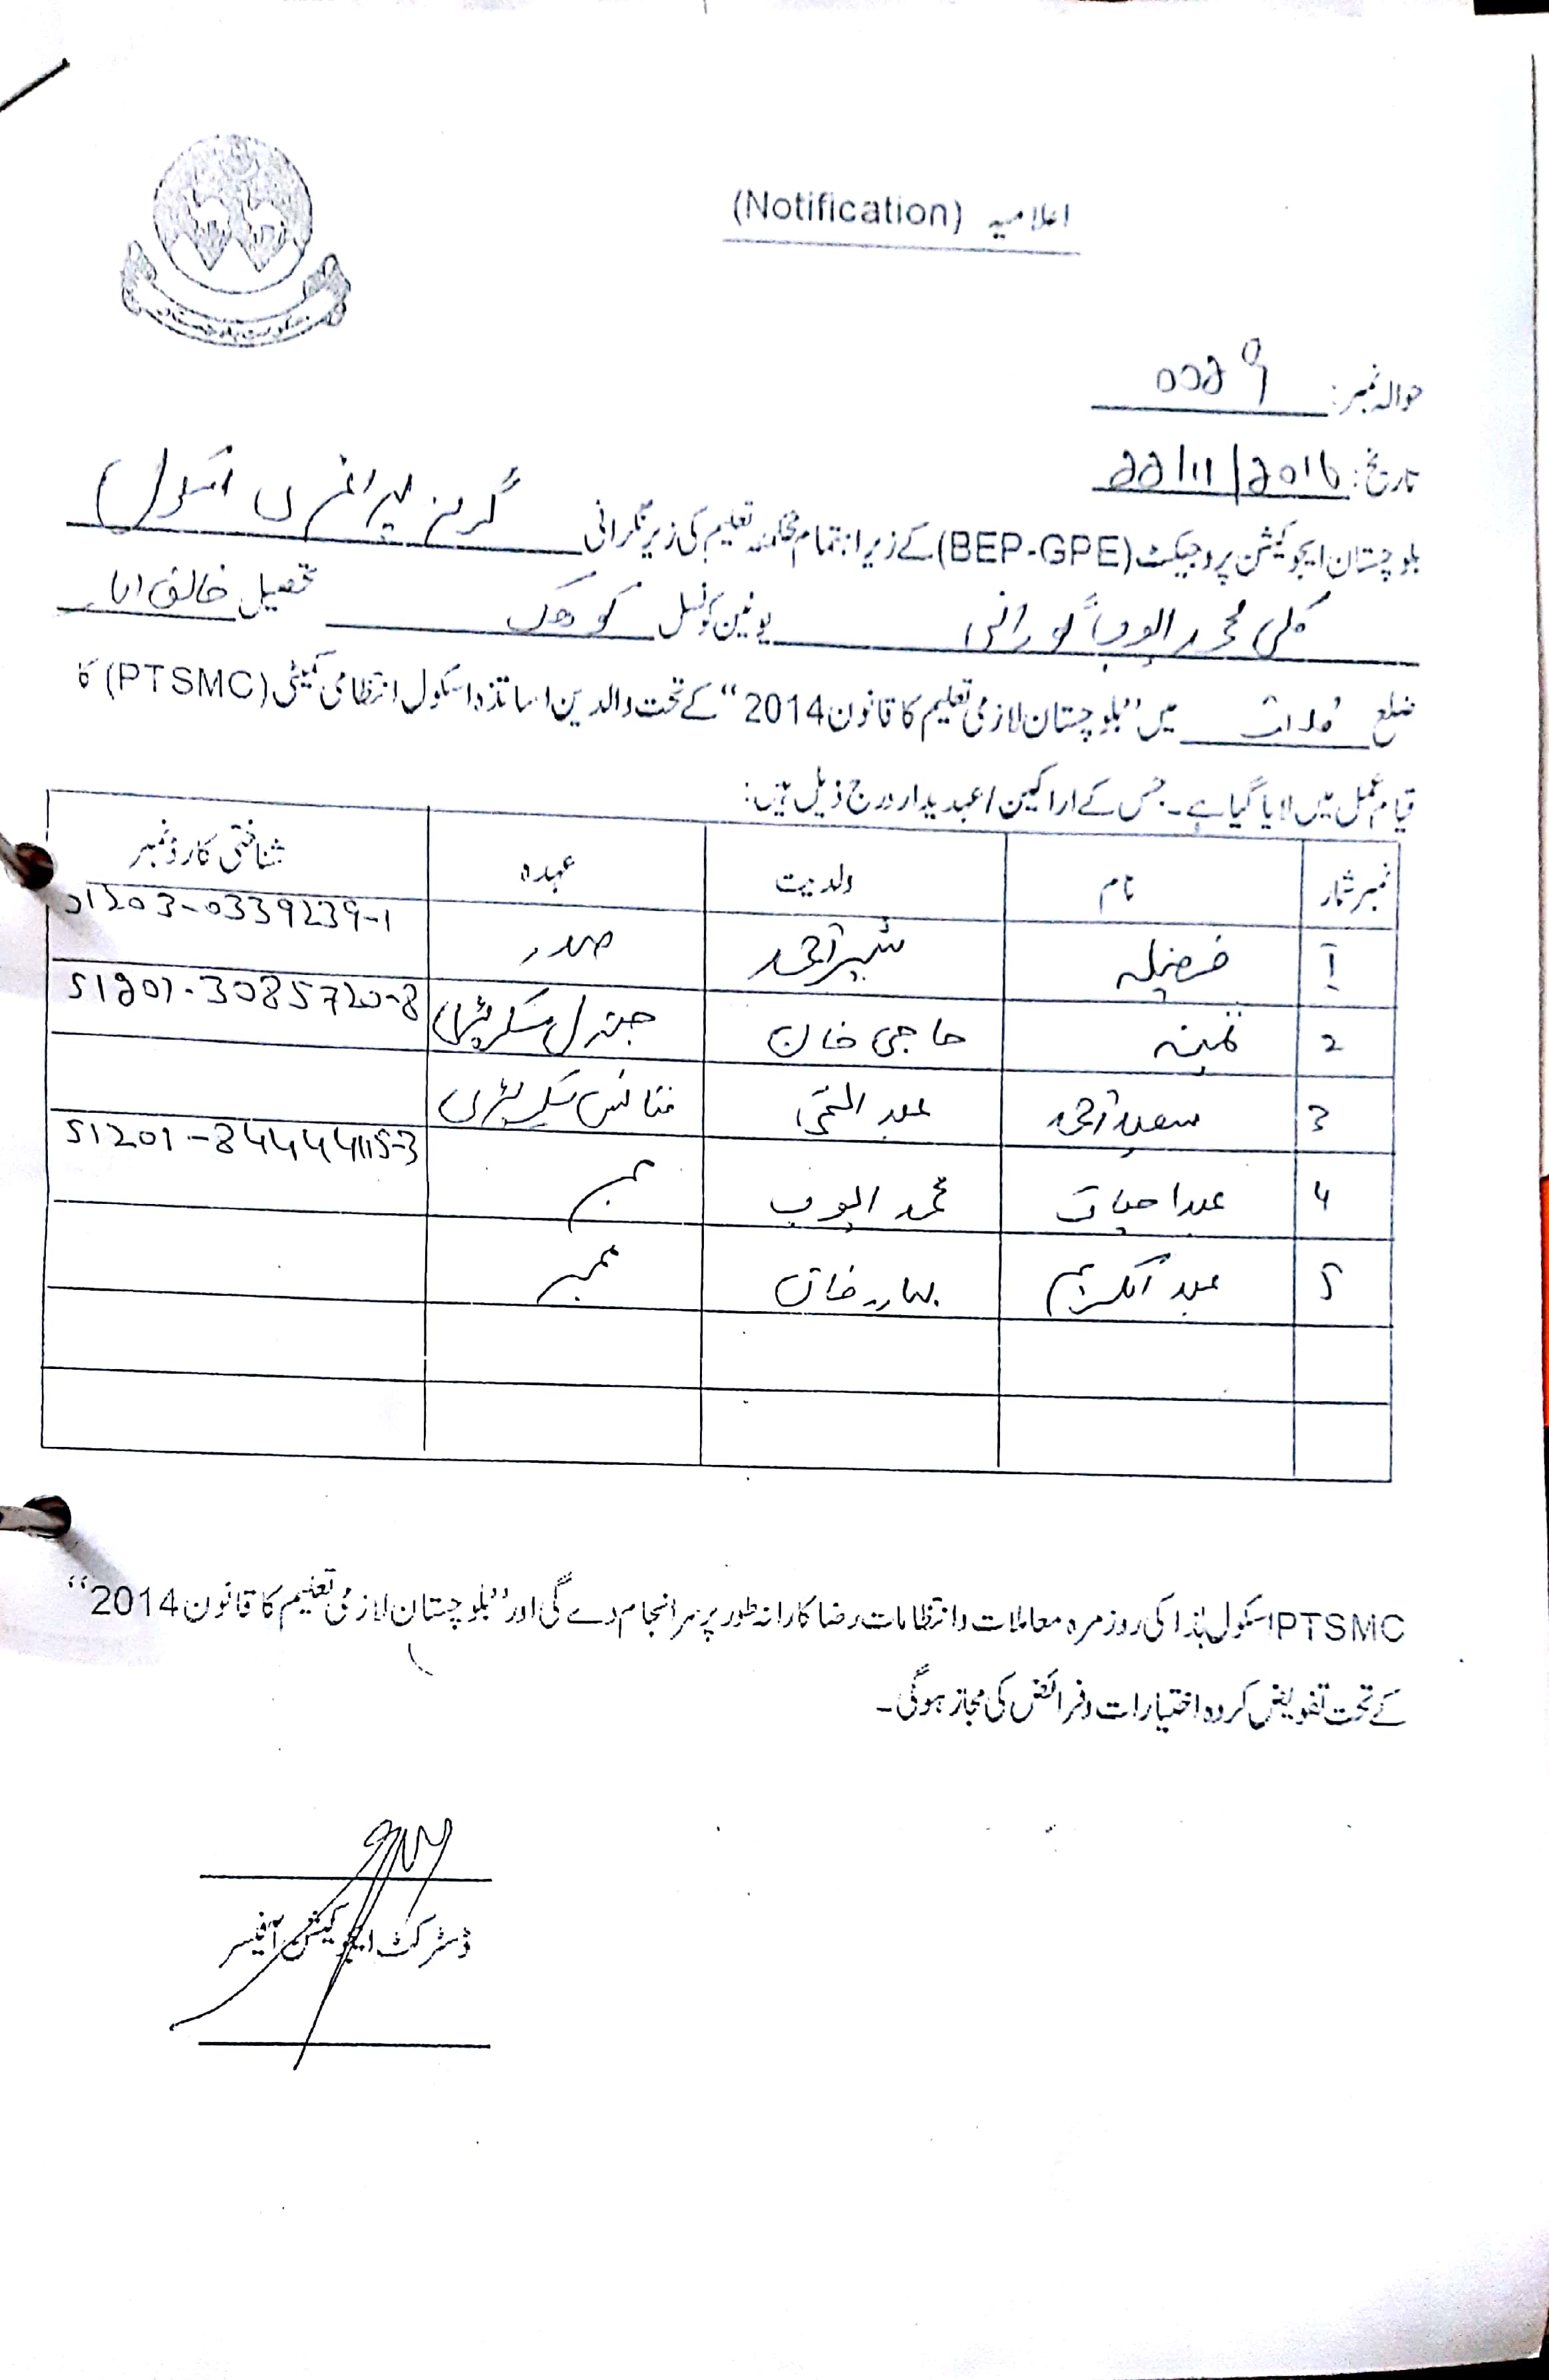 اعلامیہ (Notification)
حکومت بلوچستان
حوالہ نمبر: 0029
تاریخ: 22/11/2016
بلوچستان ایجوکیشن پروجیکٹ (BEP-GPE) کے زیر اہتمام محکمہ تعلیم کی زیر نگرانی گرلز پرائمری اسکول
کلی محمد ایوب نورانی یونین کونسل کوهک تحصیل خالق اباد
ضلع قلات میں ”بلوچستان لازمی تعلیم کا قانون 2014“ کے تحت والدین اساتذہ اسکول انتظامی کمیٹی (PTSMC) کا
قیام عمل میں لایا گیا ہے۔ جس کے اراکین / عہدیدار درج ذیل ہیں:
نمبر شمار نام ولدیت عہدہ شناختی کارڈ نمبر
1 فضیلہ شبیر احمد صدر 51203-0339239-1
2 ثمینہ حاجی خان جنرل سکریٹری 51201-3085720-8
3 سعید احمد عبد الغنی فنانس سکریٹری
4 عبدا حیات محمد ایوب ممبر 51201-8444415-3
5 عبد الکریم بہادر خان ممبر
PTSMC اسکول ہٰذا کی روزمرہ معاملات و انتظامات رضاکارانہ طور پر سرانجام دے گی اور ”بلوچستان لازمی تعلیم کا قانون 2014“
کے تحت تفویض کردہ اختیارات و فرائض کی مجاز ہوگی۔
ڈسٹرکٹ ایجوکیشن آفیسر